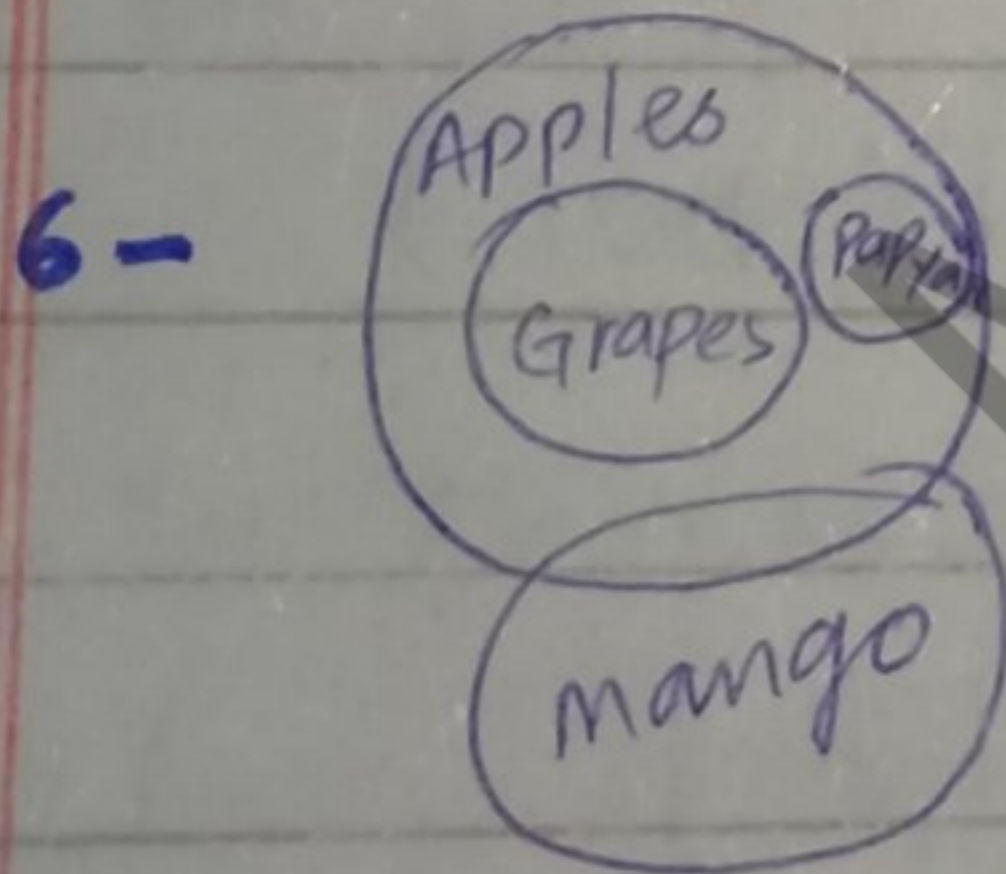 6-
Apples
Grapes
Papya
mango